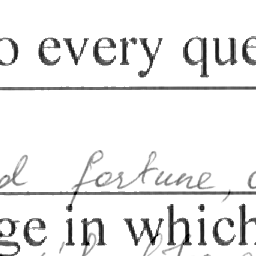 o every que
d fortune,
ge in which